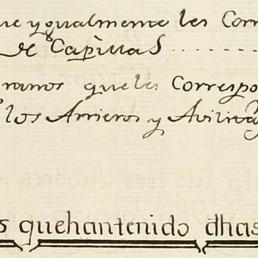 ue y gualmente les Corr
de Capillas
ranos queles Correspo
los Arrieros y Avilita
s quehantenido dhas